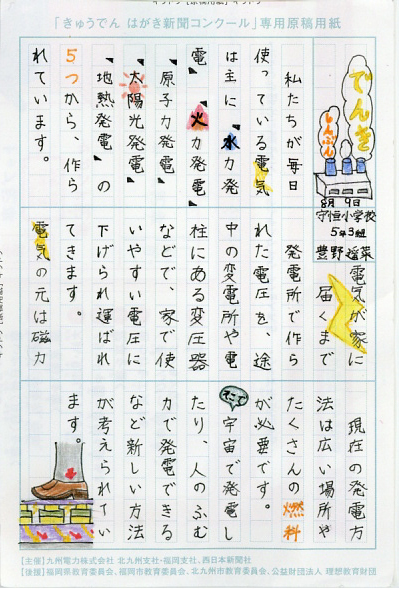 「きゅうでん はがき新聞コンクール」専用原稿用紙
でんき
しんぶん
8月 9日
守恒小学校
5年3組
豊野 遥菜
私たちが毎日
使っている電気
は主に「水力発
電」「火力発電」
「原子力発電」
「太陽光発電」
「地熱発電」の
5つから、作ら
れています。
電気が家に
届くまで
発電所で作ら
れた電圧を、途
中の変電所や電
柱にある変圧器
などで、家で使
いやすい電圧に
下げられ運ばれ
てきます。
電気の元は磁力
現在の発電方
法は広い場所や
たくさんの燃料
が必要です。
そこで宇宙で発電し
たり、人のふむ
力で発電できる
など新しい方法
が考えられてい
ます。
【主催】九州電力株式会社 北九州支社・福岡支社、西日本新聞社
【後援】福岡県教育委員会、福岡市教育委員会、北九州市教育委員会、公益財団法人 理想教育財団